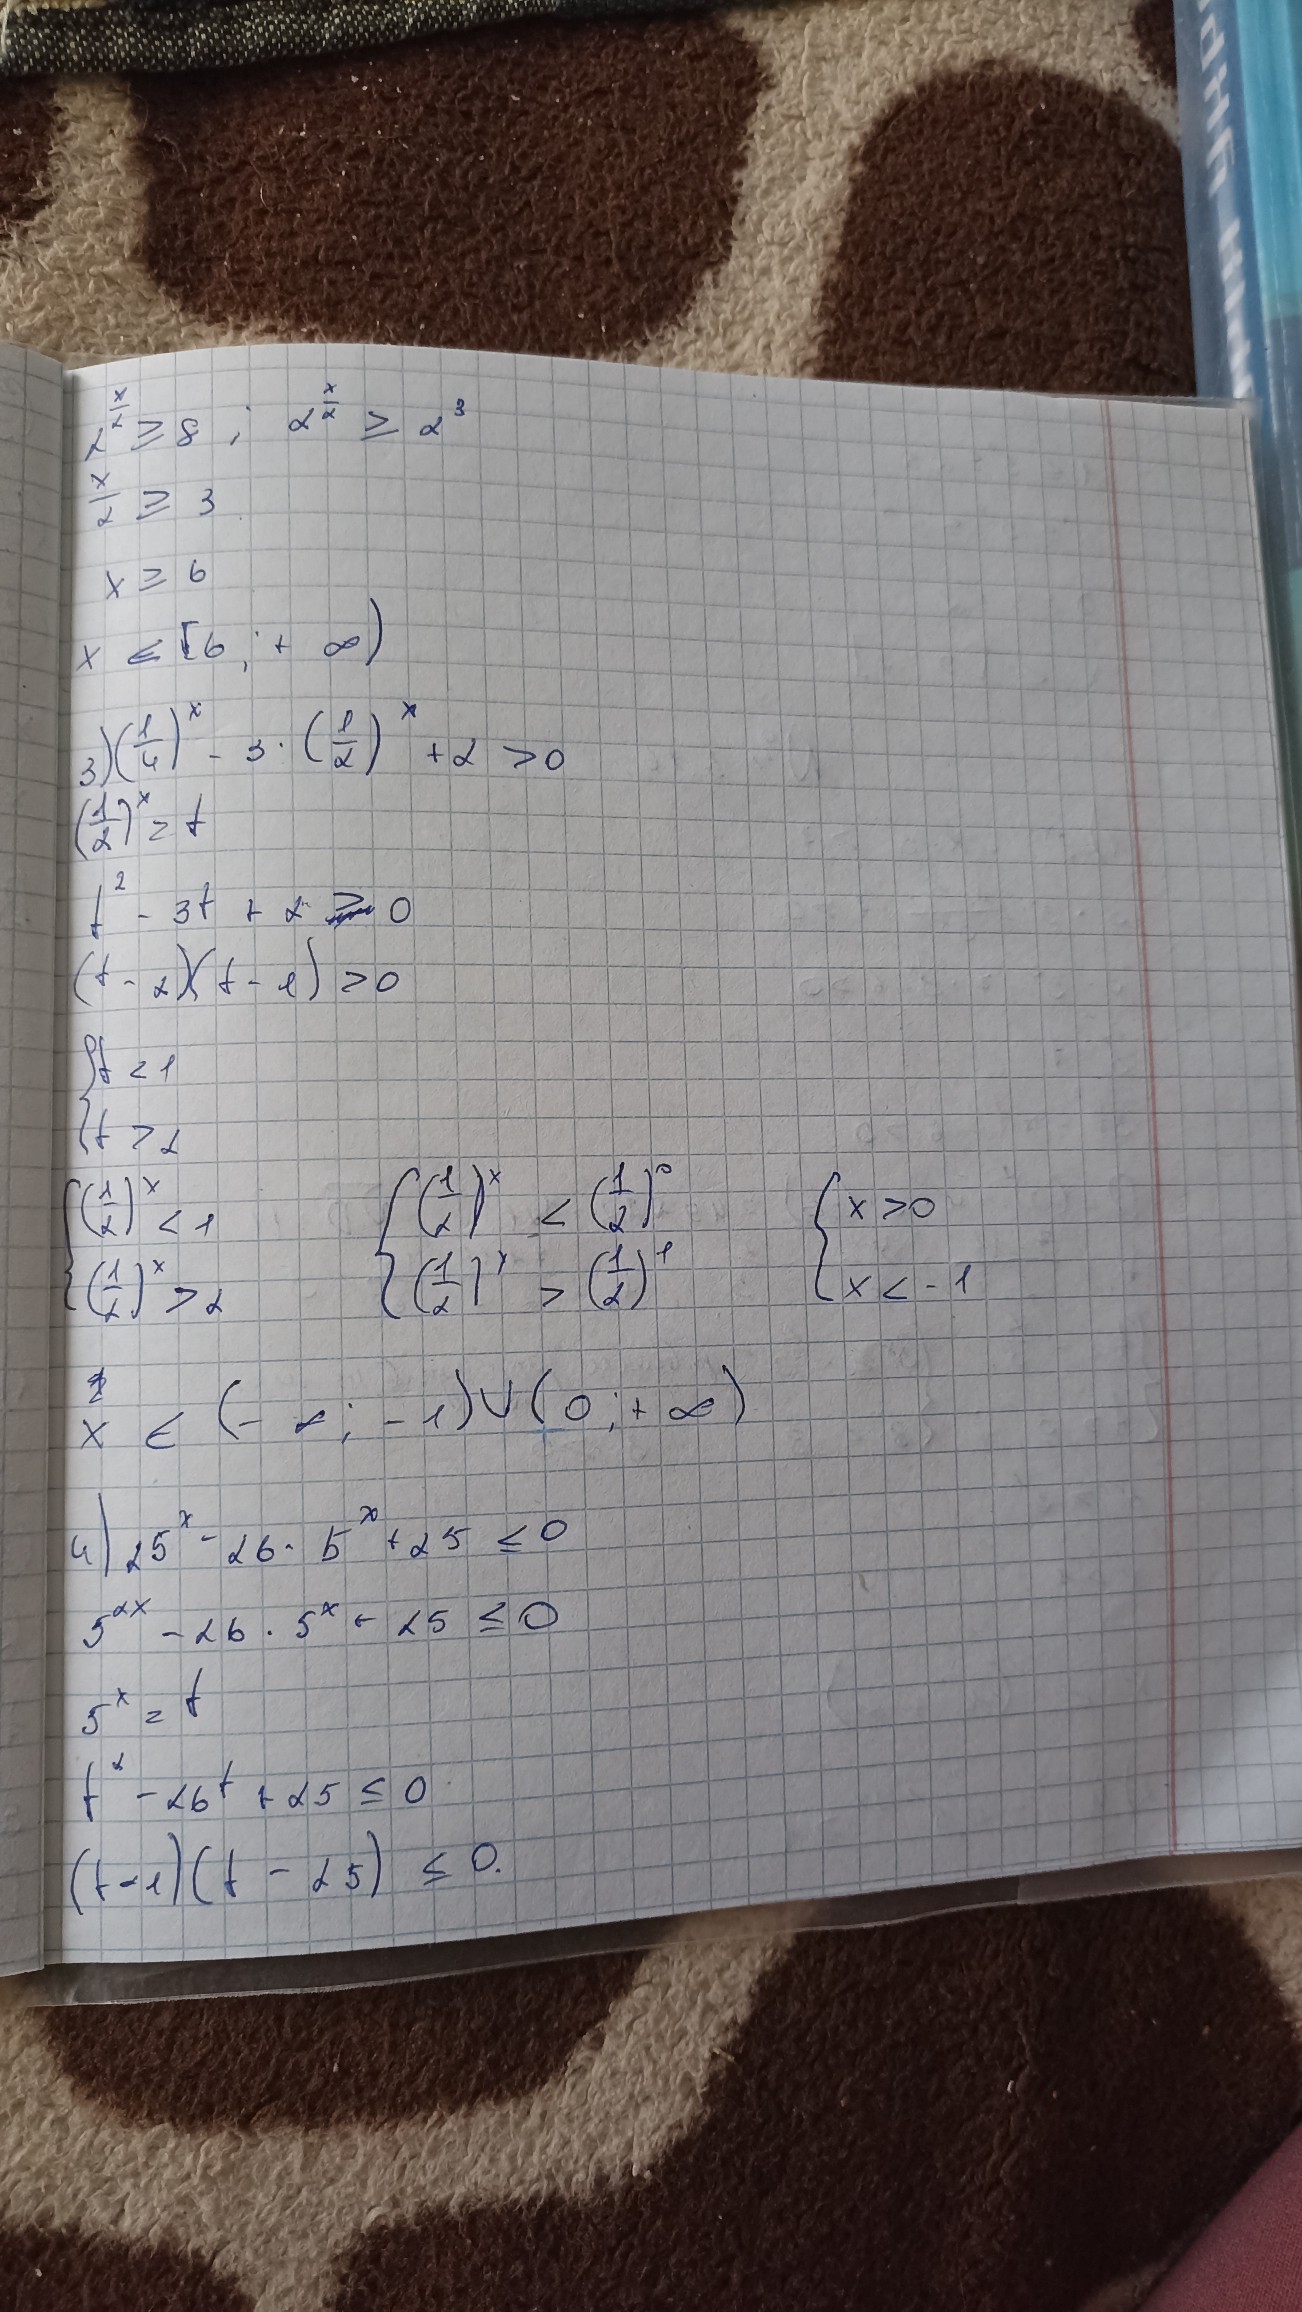 2^(x/2) ≥ 8 ; 2^(x/2) ≥ 2^3
x/2 ≥ 3
x ≥ 6
x ∈ [6 ; + ∞)
3) (1/4)^x - 3 · (1/2)^x + 2 > 0
(1/2)^x = t
t^2 - 3t + 2 > 0
(t - 2)(t - 1) > 0
{ t < 1
t > 2
{ (1/2)^x < 1 { (1/2)^x < (1/2)^0 { x > 0
(1/2)^x > 2 (1/2)^x > (1/2)^1 x < - 1
x ∈ (- ∞ ; - 1) ∪ (0 ; + ∞)
4) 25^x - 26 · 5^x + 25 ≤ 0
5^2x - 26 · 5^x + 25 ≤ 0
5^x = t
t^2 - 26t + 25 ≤ 0
(t - 1)(t - 25) ≤ 0.